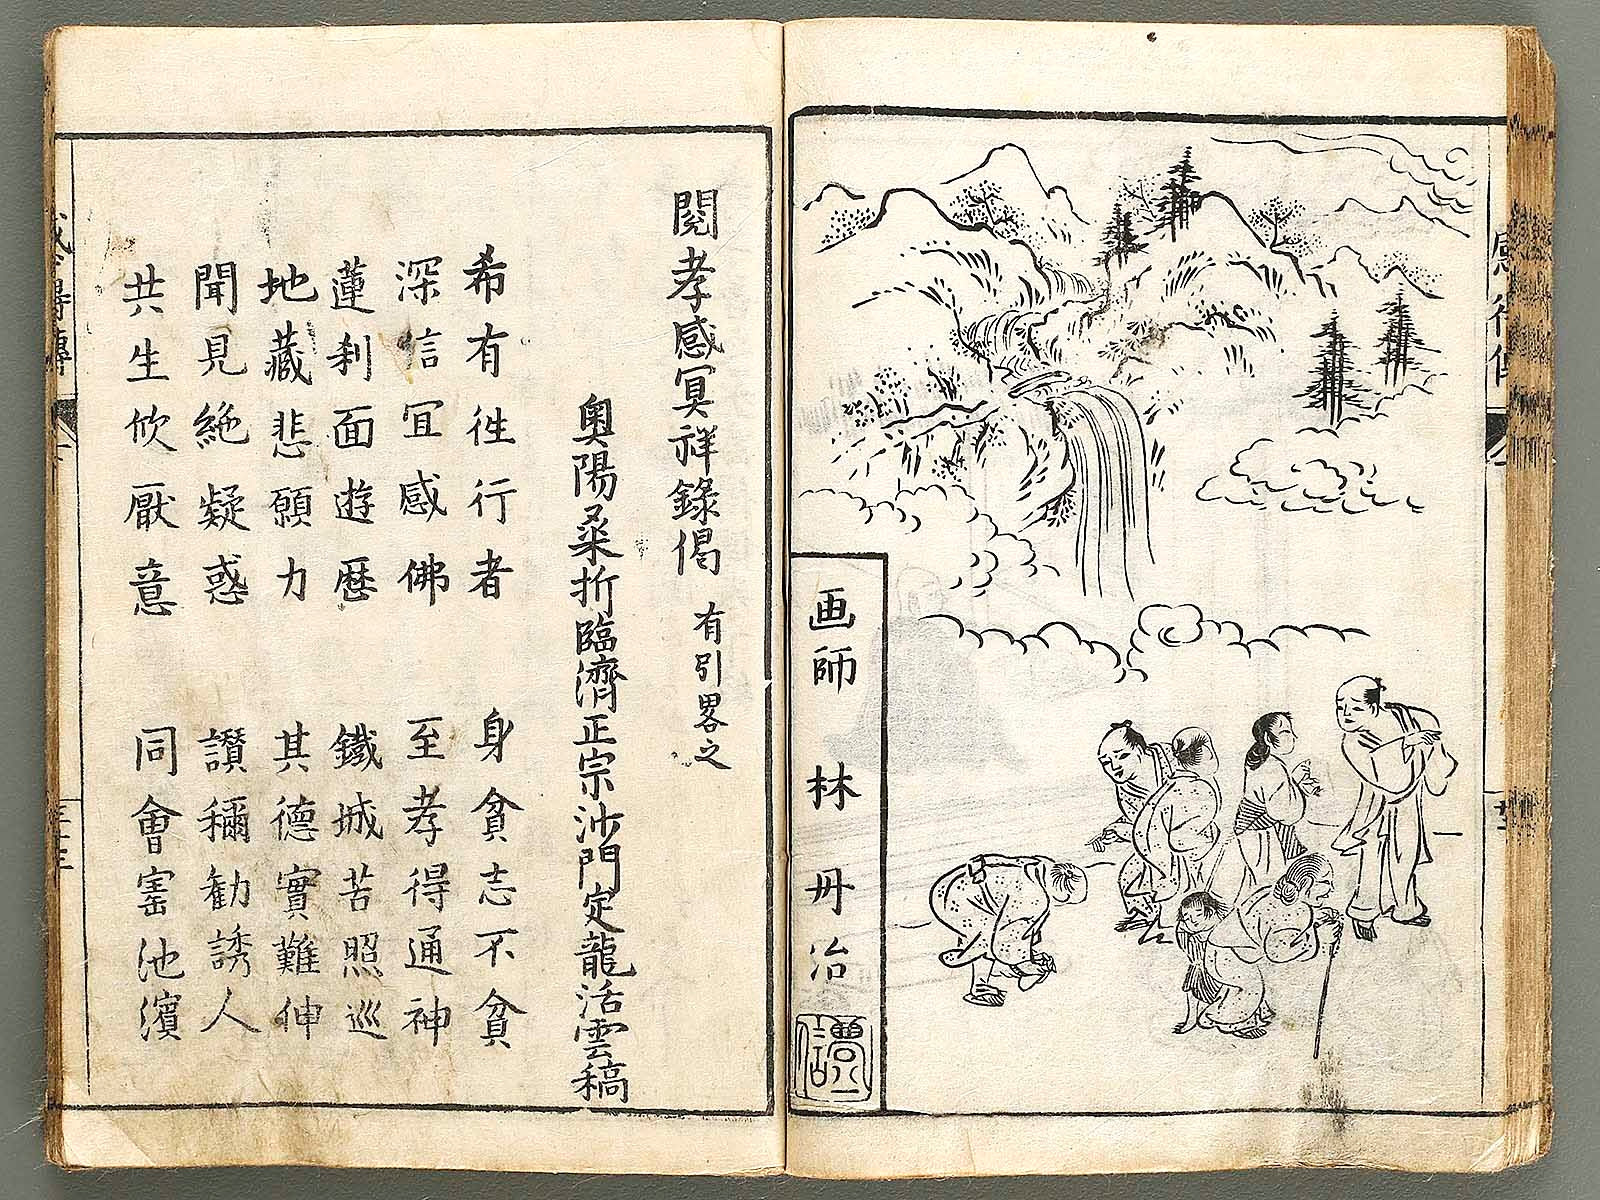 画師 林 丹治
閲孝感冥祥録偈 有引畧之
奥陽桑折臨濟正宗沙門定龍活雲稿
希有徃行者 身貧志不貧
深信冝感佛 至孝得通神
蓮刹面遊歴 鐵城苦照巡
地藏悲願力 其徳實難伸
聞見絶疑惑 讃稱勧誘人
共生欣厭意 同會寳池濱